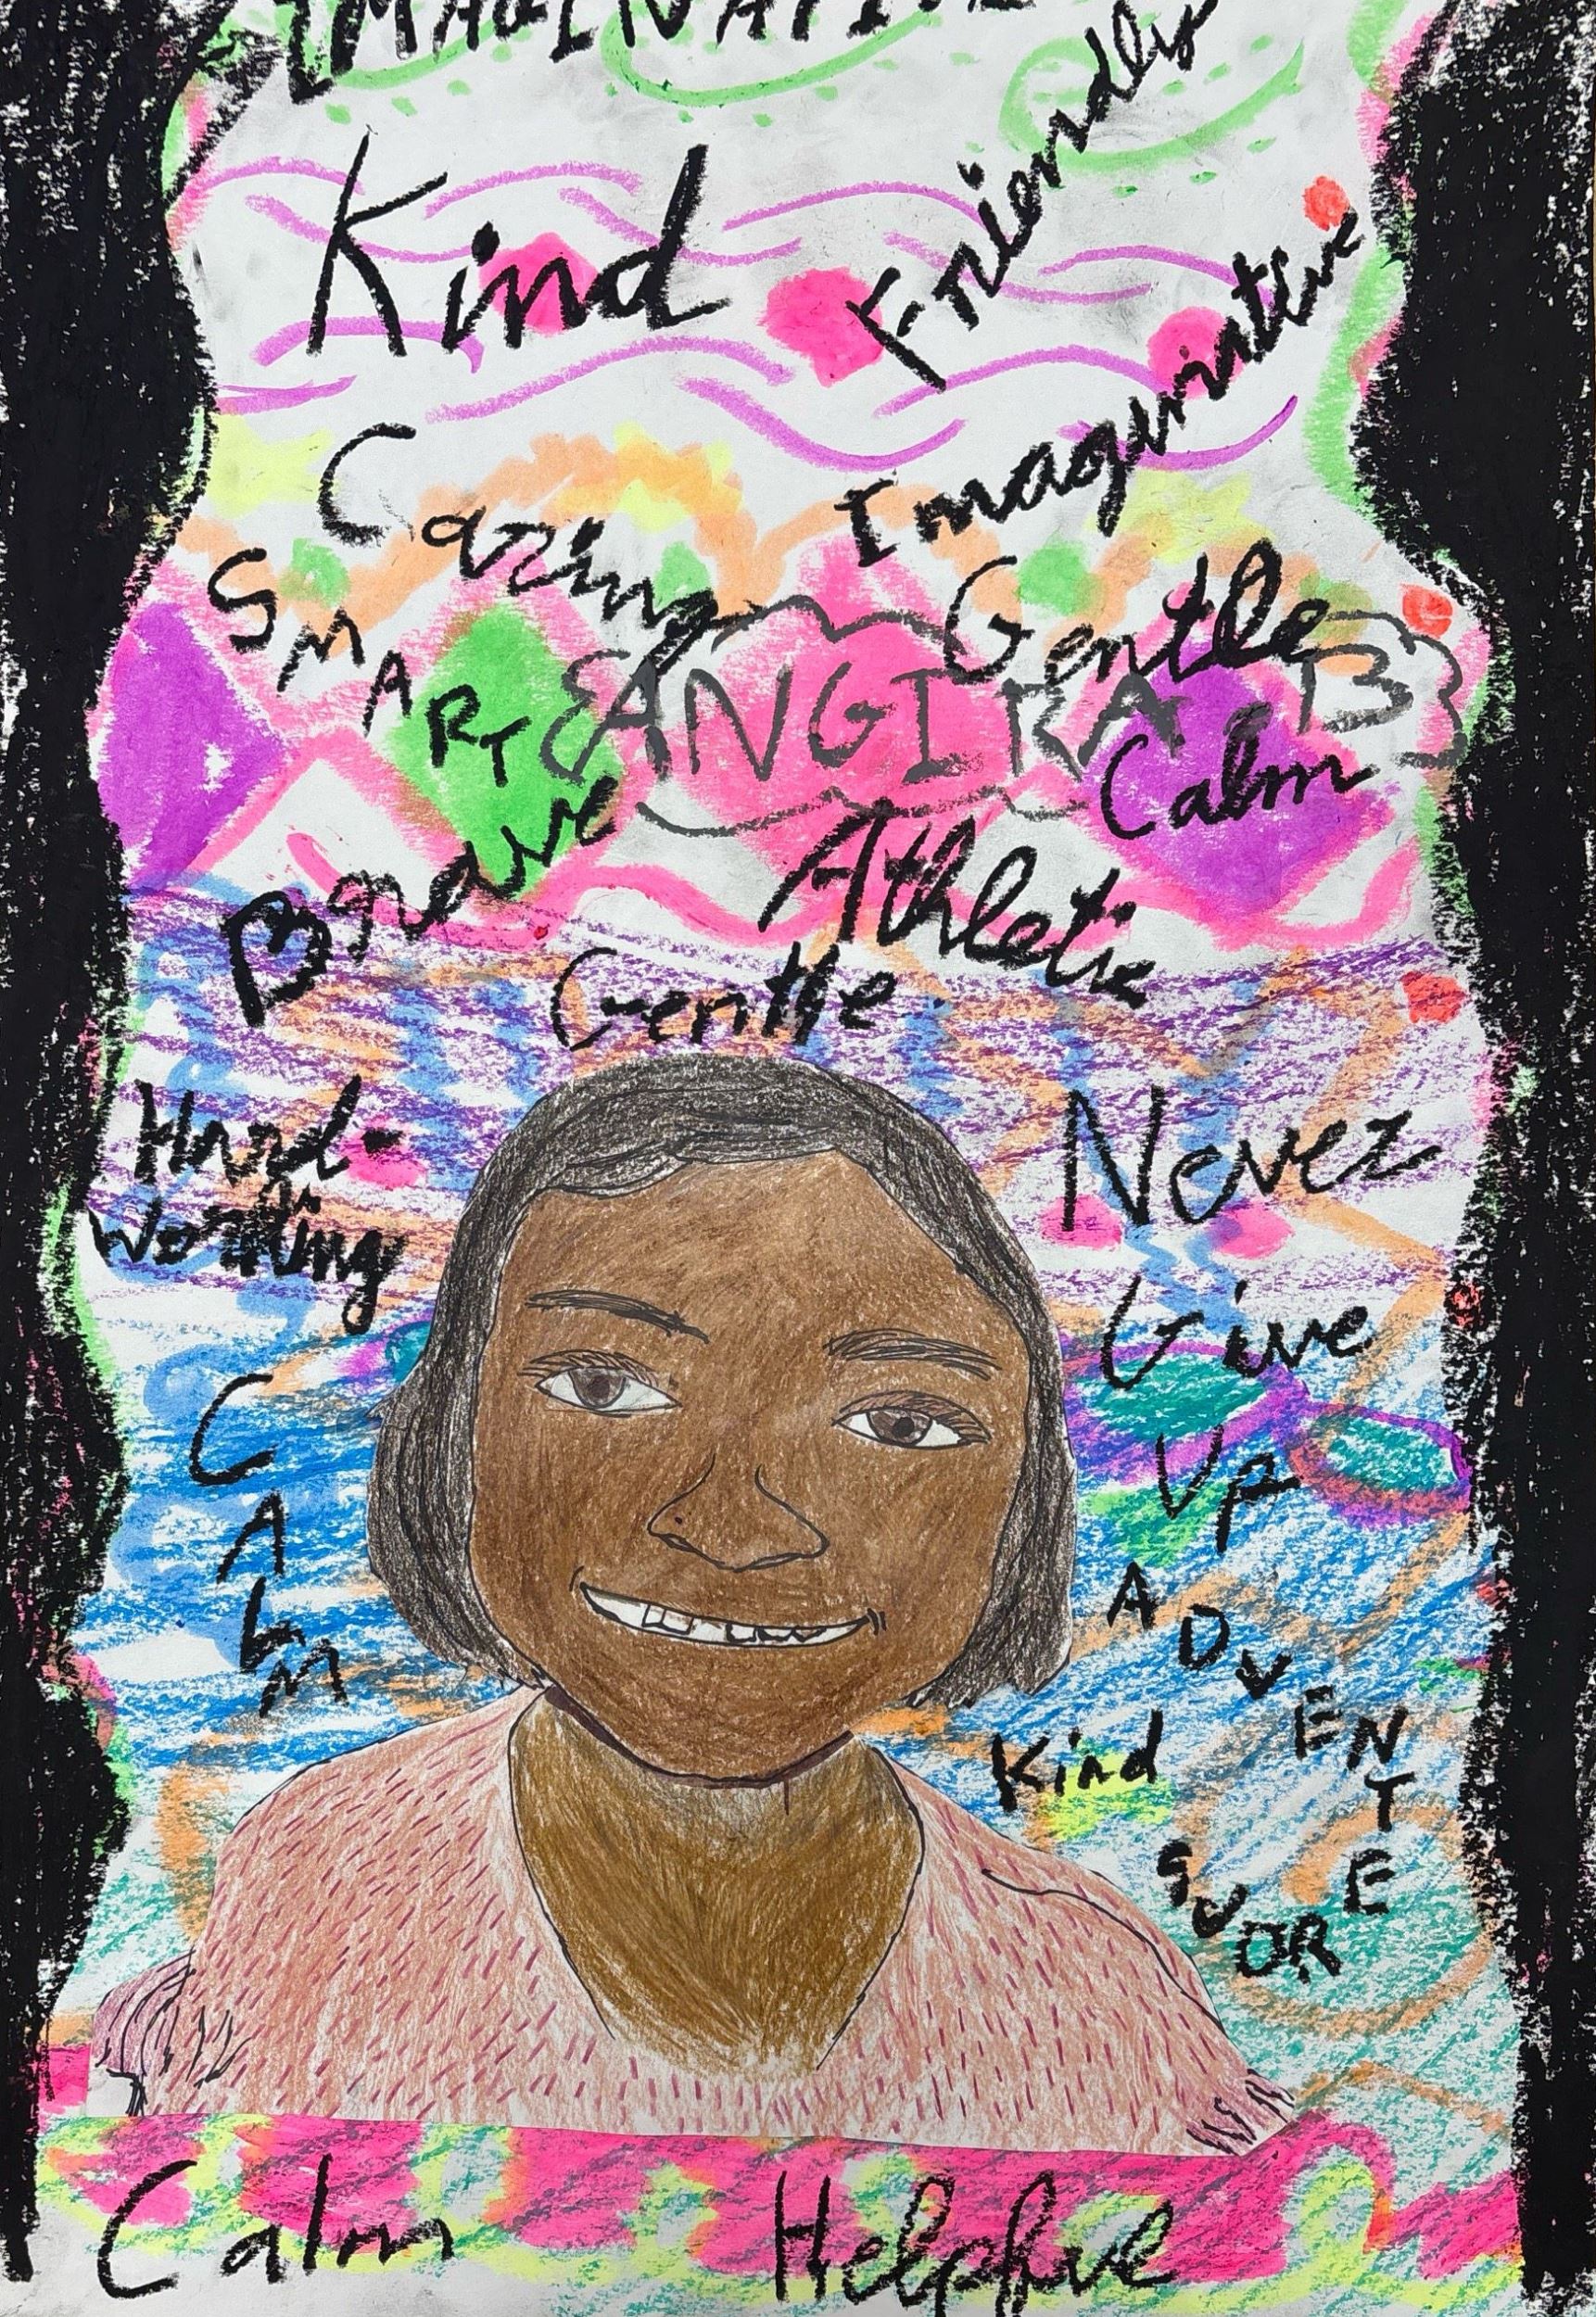 IMAGINATIVE
Kind
Friendly
Imaginative
Caring
SMART
Gentle
ANGIRA B
Calm
Brave
Athletic
Gentle
Hard-
working
Never
Give
UP
CALM
ADVENTEROUS
Kind
Calm
Helpful